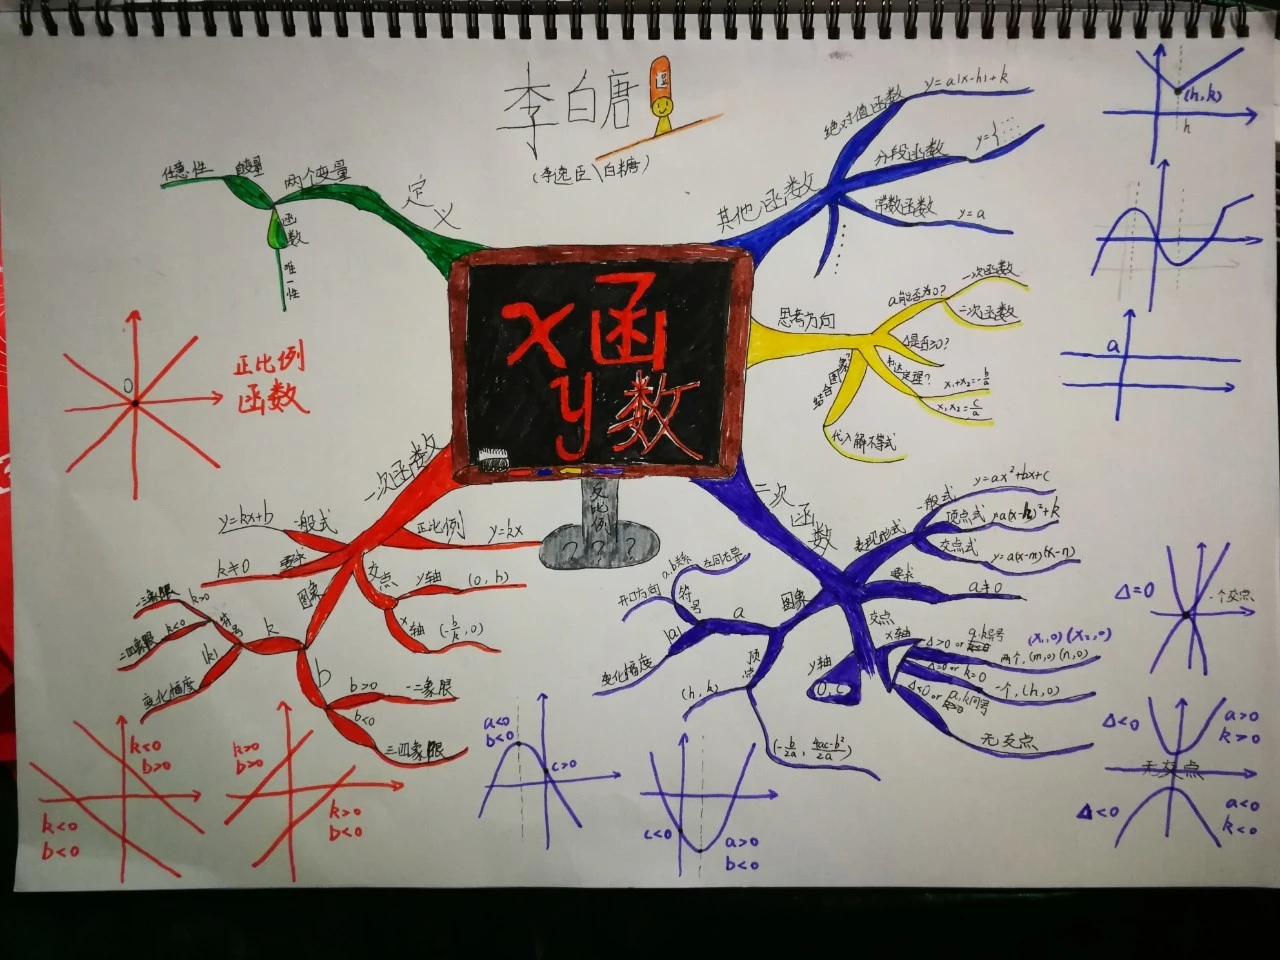 李白唐
(李逸臣\白糖)
x 函
y 数
定义
两个变量
自变量
任意性
函数
唯一性
其他函数
绝对值函数
y=a|x-h|+k
分段函数
y={
常数函数
y=a
思考方向
a能否为0?
一次函数
二次函数
Δ是否≥0?
韦达定理?
x₁+x₂=-b/a
x₁x₂=c/a
结合图象?
代入解不等式
(h,k)
h
a
0
正比例
函数
一次函数
一般式
y=kx+b
要求
k≠0
正比例
y=kx
交点
y轴
(0,b)
x轴
(-b/k,0)
图象
k
符号
k>0
一三象限
k<0
二四象限
|k|
变化幅度
b
b>0
一二象限
b<0
三四象限
反比例
? ? ?
二次函数
表现形式
一般式
y=ax²+bx+c
顶点式
y=a(x-h)²+k
交点式
y=a(x-m)(x-n)
要求
a≠0
交点
x轴
Δ>0 or a,k异号
(x₁,0)(x₂,0)
两个,(m,0)(n,0)
Δ=0 or k=0
一个,(h,0)
Δ<0 or a,k同号
无交点
y轴
0,c
图象
a
符号
开口方向
a.b关系
左同右异
|a|
变化幅度
顶点
(h,k)
(-b/2a, 4ac-b²/2a)
k<0
b>0
k<0
b<0
k>0
b>0
k>0
b<0
a<0
b<0
c>0
c<0
a>0
b<0
Δ=0
一个交点
Δ<0
a>0
k>0
无交点
Δ<0
a<0
k<0